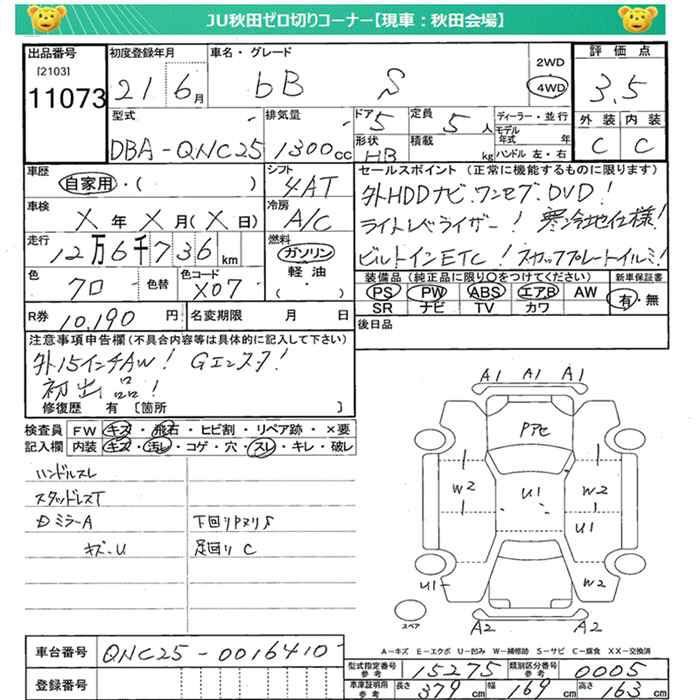 JU秋田ゼロ切りコーナー【現車：秋田会場】
出品番号 初度登録年月 車名・グレード 2WD 4WD 評価点
[2103]
11073 21 6月 bB S 3.5
型式 排気量 ドア 5 定員 5人 ディーラー・並行 外装 内装
モデル年式 年
DBA-QNC25 1300cc 形状 HB 積載 kg ハンドル 左・右 C C
車歴 シフト セールスポイント (正常に機能するものに限ります)
自家用・( ) 4AT 外HDDナビ.ワンセグ.DVD!
車検 冷房
X年X月(X日) A/C ライトレベライザー! 寒冷地仕様!
走行 燃料
12万6千736km ガソリン ビルトインETC! スカッフプレートイルミ!
軽油
色 色替 色コード ( ) 装備品(純正品に限り○をつけてください) 新車保証書
クロ X07 PS PW ABS エアB AW 有・無
SR ナビ TV カワ
R券 10,190円 名変期限 月 日 後日品
注意事項申告欄(不具合内容等は具体的に記入して下さい)
外15インチAW! Gエンスタ!
初出品!
修復歴 有 [箇所 ]
検査員 FW キズ・飛石・ヒビ割・リペア跡・×要
記入欄 内装 キズ・汚レ・コゲ・穴・スレ・キレ・破レ
ハンドルスレ
スタッドレスT
ミラーA 下回りPヌリS
キズ-U 足回りC
A1 A1 A1
Pアセ
W2 U1 W2
U1
U1 W2
スペア A2 A2
A-キズ E-エクボ U-凹み W-補修跡 S-サビ C-腐食 XX-交換済
車台番号 QNC25-0016410-
登録番号
型式指定番号 参考 15275 類別区分番号 参考 0005
車庫証明用 参考 長さ 379cm 幅 169cm 高さ 163cm